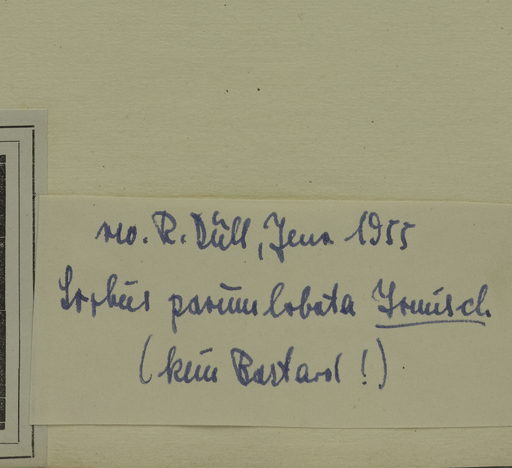 rev. R. Düll, Jena 1955
Sorbus parumlobata Irmisch.
(kein Bastard!)